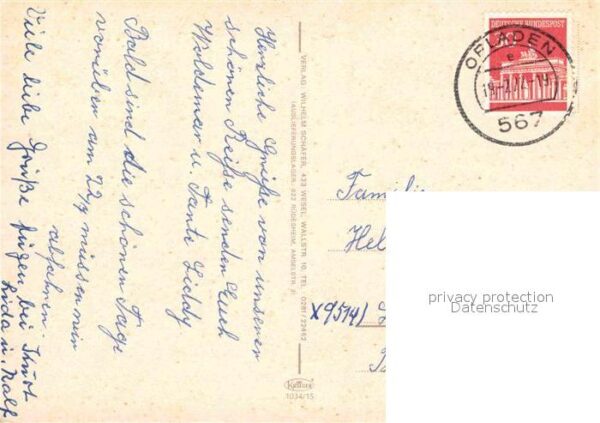 Herzliche Grüße von unserer
schönen Reise senden Euch
Woldemar u. Tante Liddy
Bald sind die schönen Tage
vorüber am 22/7 müssen wir
abfahren.
Viele liebe Grüße fügen bei
u. Ralf
VERLAG WILHELM SCHÄFER, 423 WESEL, WALLSTR. 10, TEL.: 0281/22462
(AUSLIEFERUNGSLAGER: 622 RÜDESHEIM, AMSELSTR. 2)
1034/15
DEUTSCHE BUNDESPOST
OPLADEN
e
567
Familie
Hel
X9514)
privacy protection
Datenschutz